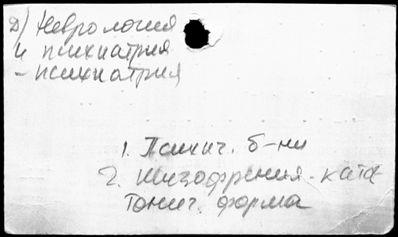 Д) Неврология
и психиатрия
- психиатрия
1. Психич. б-ни
2. Шизофрения - ката
тонич. форма